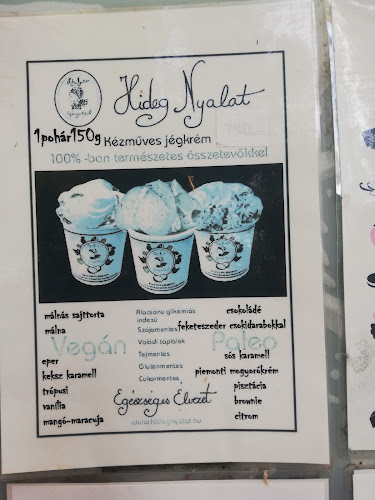 Hideg Nyalat
1pohár150g
Kézműves jégkrém
100%-ban természetes összetevőkkel
málnás sajttorta
málna
Vegán
eper
keksz karamell
trópusi
vanília
mangó-maracuja
Alacsony glikémiás
indexű
Szójamentes
Valódi táplálék
Tejmentes
Gluténmentes
Cukormentes
csokoládé
feketeszeder csokidarabokkal
Paleo
sós karamell
piemonti mogyorókrém
pisztácia
brownie
citrom
Egészséges Élvezet
www.hidegnyalat.hu